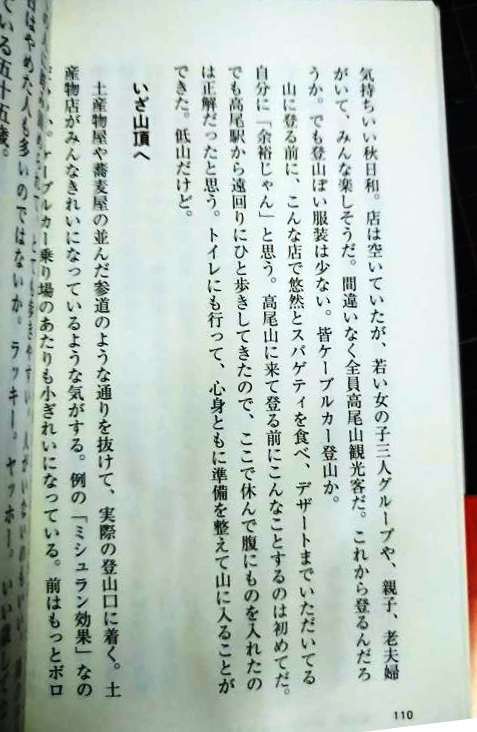 気持ちいい秋日和。店は空いていたが、若い女の子三人グループや、親子、老夫婦
がいて、みんな楽しそうだ。間違いなく全員高尾山観光客だ。これから登るんだろ
うか。でも登山ぽい服装は少ない。皆ケーブルカー登山か。
山に登る前に、こんな店で悠然とスパゲティを食べ、デザートまでいただいてる
自分に「余裕じゃん」と思う。高尾山に来て登る前にこんなことするのは初めてだ。
でも高尾駅から遠回りにひと歩きしてきたので、ここで休んで腹にものを入れたの
は正解だったと思う。トイレにも行って、心身ともに準備を整えて山に入ることが
できた。低山だけど。
いざ山頂へ
土産物屋や蕎麦屋の並んだ参道のような通りを抜けて、実際の登山口に着く。土
産物店がみんなきれいになっているような気がする。例の「ミシュラン効果」なの
か。ケーブルカー乗り場のあたりも小ぎれいになっている。前はもっとボロ
110
はやめた人も多いのではないか。ラッキー。ヤッホー。いい
ている五十五歳。